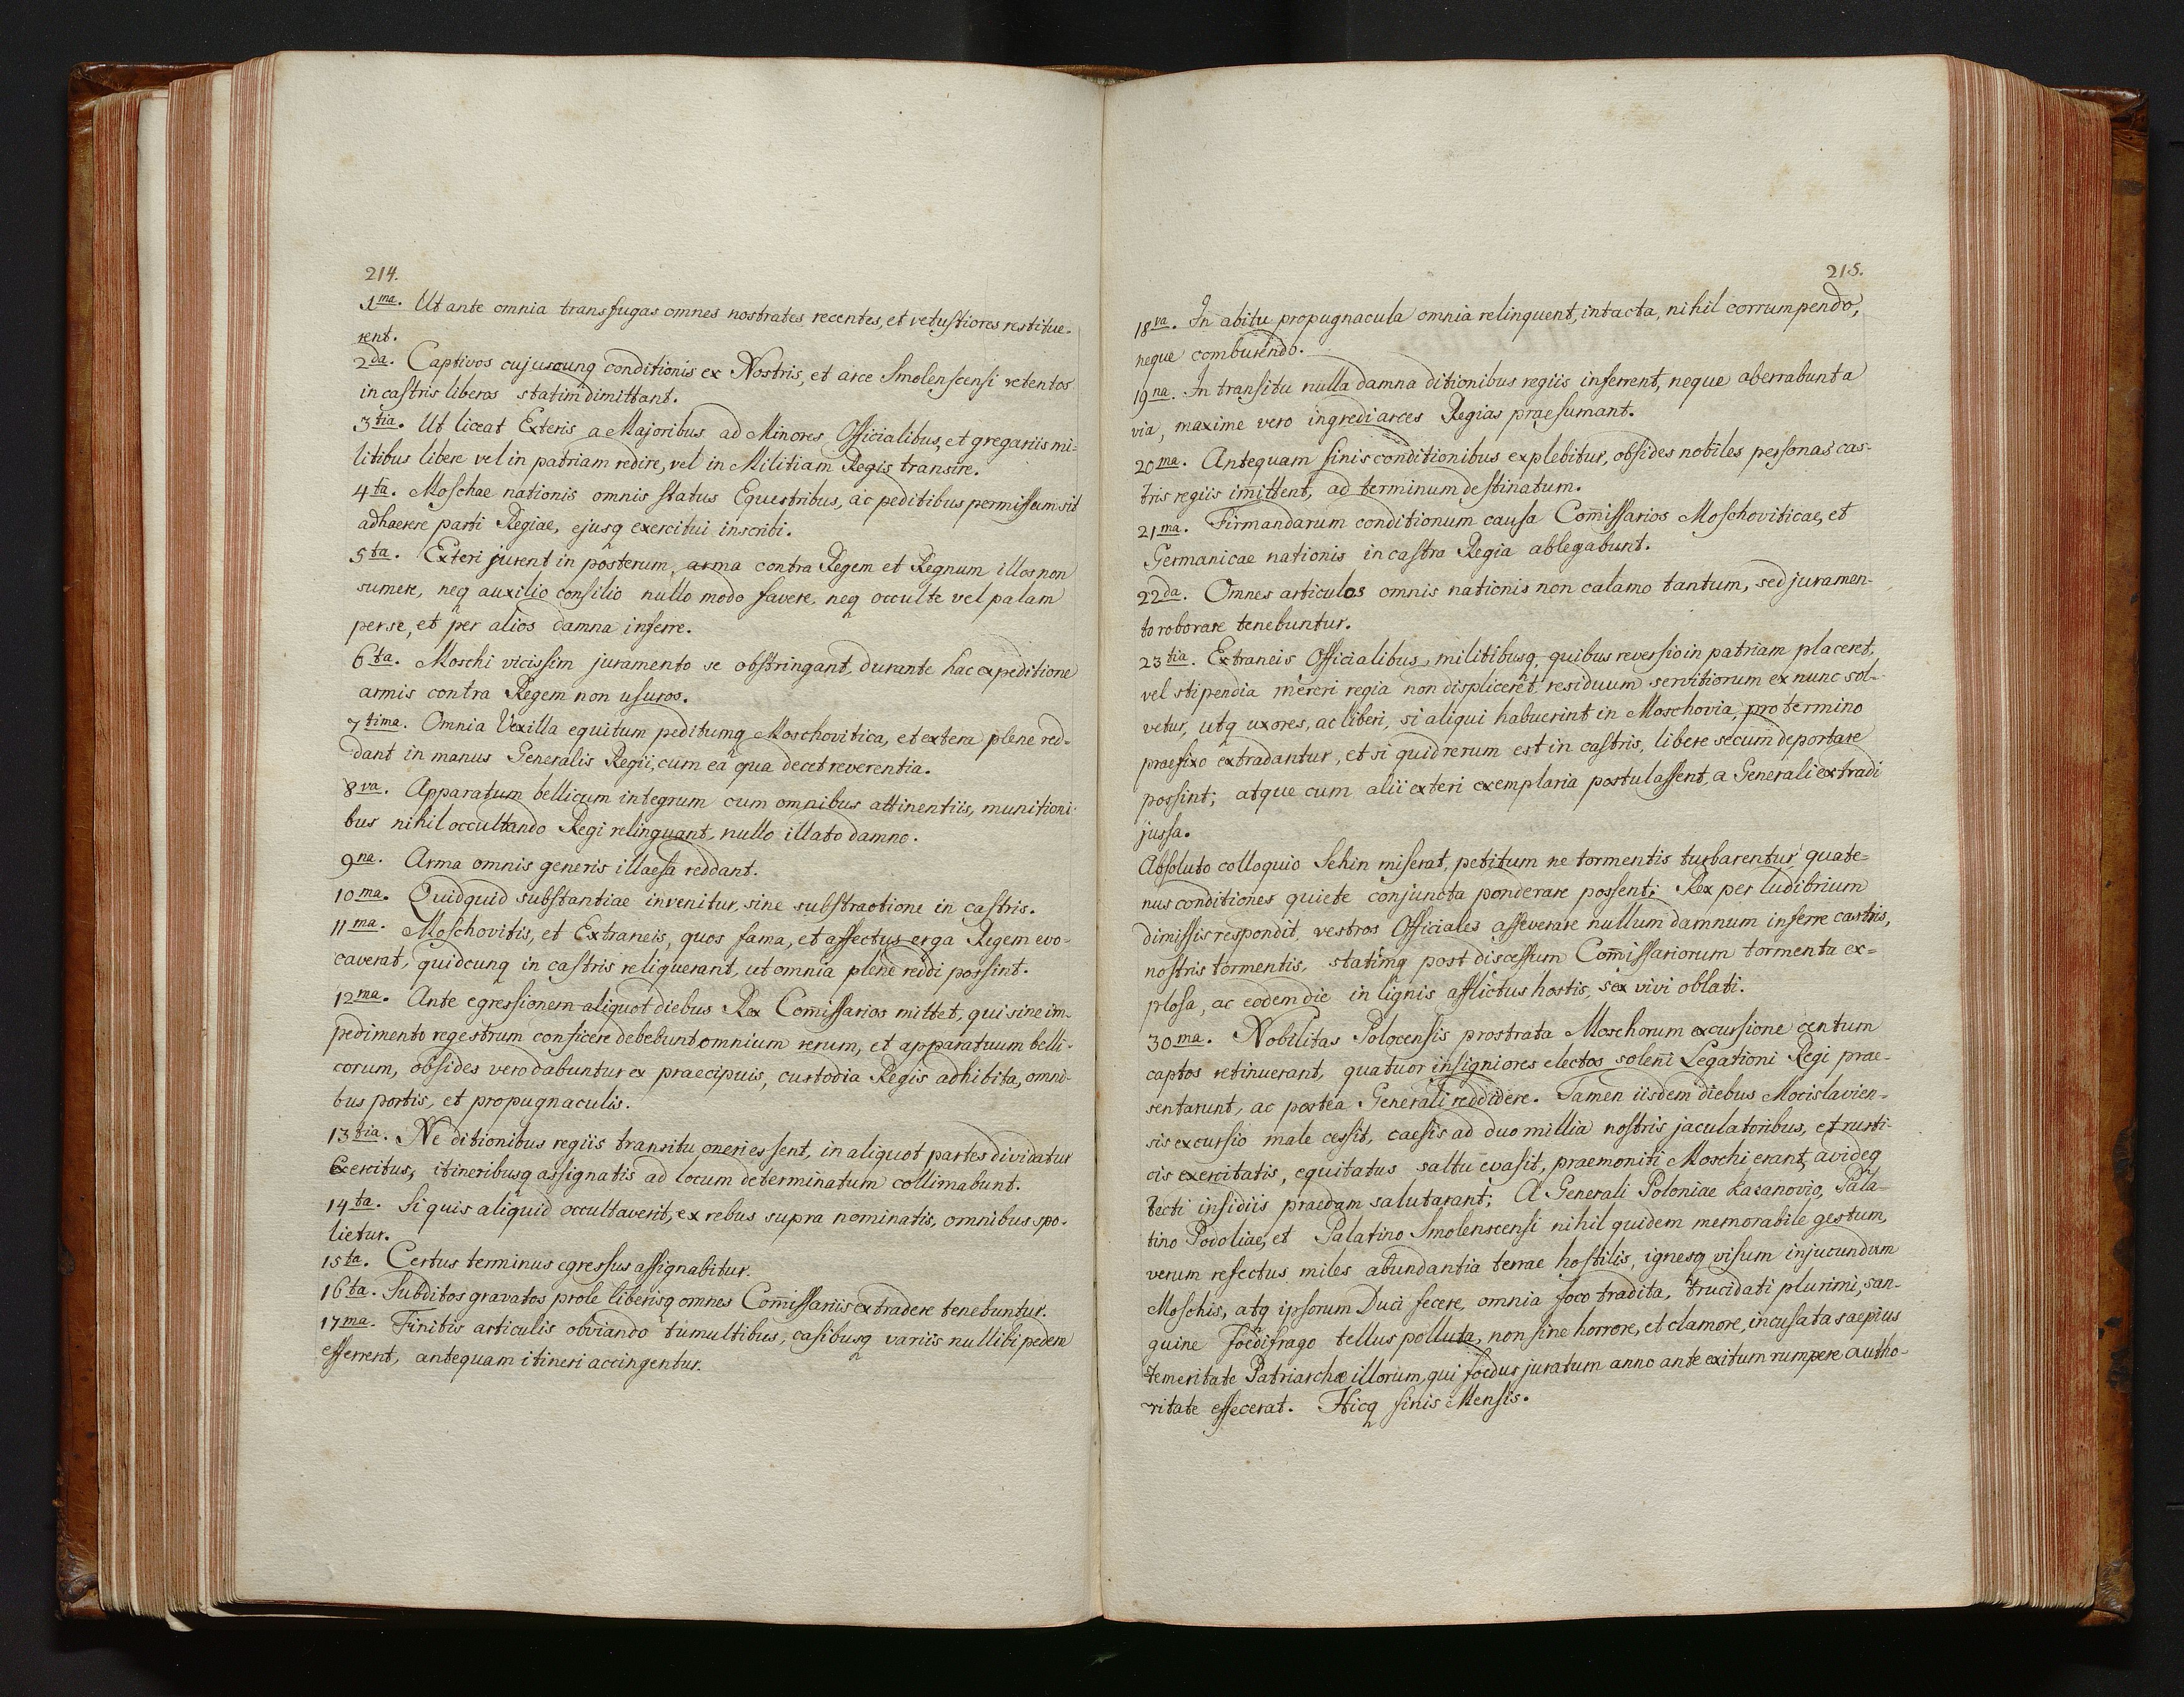 214.
1ma. Ut ante omnia transfugas omnes nostrates recentes, et vetustiores restitue-
rent.
2da. Captivos cujuscunq conditionis ex Nostris, et arce Smolenscensi retentos
in castris liberos statim dimittant.
3tia. Ut liceat Exteris a Majoribus ad Minores Officialibus, et gregariis mi-
litibus libere vel in patriam redire, vel in Militiam Regis transire.
4ta. Moschae nationis omnis status Equestribus, ac peditibus permissum sit
adhaerere parti Regiae, ejusq exercitui inscribi.
5ta. Exteri jurent in posterum, arma contra Regem et Regnum illos non
sumere, neq auxilio consilio nullo modo favere, neq occulte vel palam
per se, et per alios damna inferre.
6ta. Moschi vicissim juramento se obstringant, durante hac expeditione
armis contra Regem non usuros.
7tima. Omnia Vexilla equitum peditumq Moschovitica, et extera plene red-
dant in manus Generalis Regii, cum ea qua decet reverentia.
8va. Apparatum bellicum integrum cum omnibus attinentiis, munitioni-
bus nihil occultando Regi relinquant, nullo illato damno.
9na. Arma omnis generis illaesa reddant.
10ma. Quidquid substantiae invenitur, sine substractione in castris.
11ma. Moschovitis, et Extraneis, quos fama, et affectus erga Regem evo-
caverat, quidcunq in castris reliquerant, ut omnia plene reddi possint.
12ma. Ante egressionem aliquot diebus Rex Com̄issarios mittet, qui sine im-
pedimento regestrum conficere debebunt omnium rerum, et apparatuum belli-
corum, obsides vero dabuntur ex praecipuis, custodia Regis adhibita, omni-
bus portis, et propugnaculis.
13tia. Ne ditionibus regiis transitu oneri essent, in aliquot partes dividatur
Exercitus, itineribusq assignatis ad locum determinatum collimabunt.
14ta. Si quis aliquid occultaverit, ex rebus supra nominatis, omnibus spo-
lietur.
15ta. Certus terminus egressus assignabitur.
16ta. Subditos gravatos prole liberisq omnes Com̄issariis extradere tenebuntur.
17ma. Finitis articulis obviando tumultibus, casibusq variis nullibi pedem
efferrent, antequam itineri accingentur.
215.
18va. In abitu propugnacula omnia relinquent, intacta, nihil corrumpendo,
neque comburendo.
19na. In transitu nulla damna ditionibus regiis inferrent, neque aberrabunt a
via, maxime vero ingredi arces Regias praesumant.
20ma. Antequam finis conditionibus explebitur, obsides nobiles personas cas-
tris regiis im̄ittent, ad terminum destinatum.
21ma. Firmandarum conditionum causa Com̄issarios Moschoviticae, et
Germanicae nationis in castra Regia ablegabunt.
22da. Omnes articulos omnis nationis non calamo tantum, sed juramen-
to roborare tenebuntur.
23tia. Extraneis Officialibus, militibusq, quibus reversio in patriam placeret,
vel stipendia mereri regia non displiceret, residuum servitiorum ex nunc sol-
vetur, utq uxores, ac liberi, si aliqui habuerint in Moschovia, pro termino
praefixo extradantur, et si quid rerum est in castris, libere secum deportare
possint; atque cum alii exteri exemplaria postulassent, a Generali extradi
jussa.
Absoluto colloquio Sehin miserat, petitum ne tormentis turbarentur quate-
nus conditiones quiete conjuncta ponderare possent; Rex per ludibrium
dimissis respondit, vestros Officiales asseverare nullum damnum inferre castris,
nostris tormentis, statimq post discessum Com̄issariorum tormenta ex-
plosa, ac eodem die in lignis afflictus hostis, sex vivi oblati.
30ma. Nobilitas Polocensis prostrata Moschorum excursione centum
captos retinuerant, quatuor insigniores electos solen̄i Legationi Regi prae-
sentarunt, ac postea Generali reddidere. Tamen iisdem diebus Mocislavien-
sis excursio male cessit, caesis ad duo millia nostris jaculatoribus, et rusti-
cis exercitatis, equitatus saltu evasit, praemoniti Moschi erant, avideq
tecti insidiis praedam salutarant; A Generali Poloniae Kazanovio, Pala-
tino Podoliae, et Palatino Smolenscensi nihil quidem memorabile gestum,
verum refectus miles abundantia terrae hostilis, ignesq visum injucundum
Moschis, atq ipsorum Duci fecere, omnia foco tradita, trucidati plurimi, san-
guine foedifrago tellus polluta, non sine horrore, et clamore, incusata saepius
temeritate Patriarchae illorum, qui foedus juratum anno ante exitum rumpere autho-
ritate effecerat. Hicq finis Mensis.